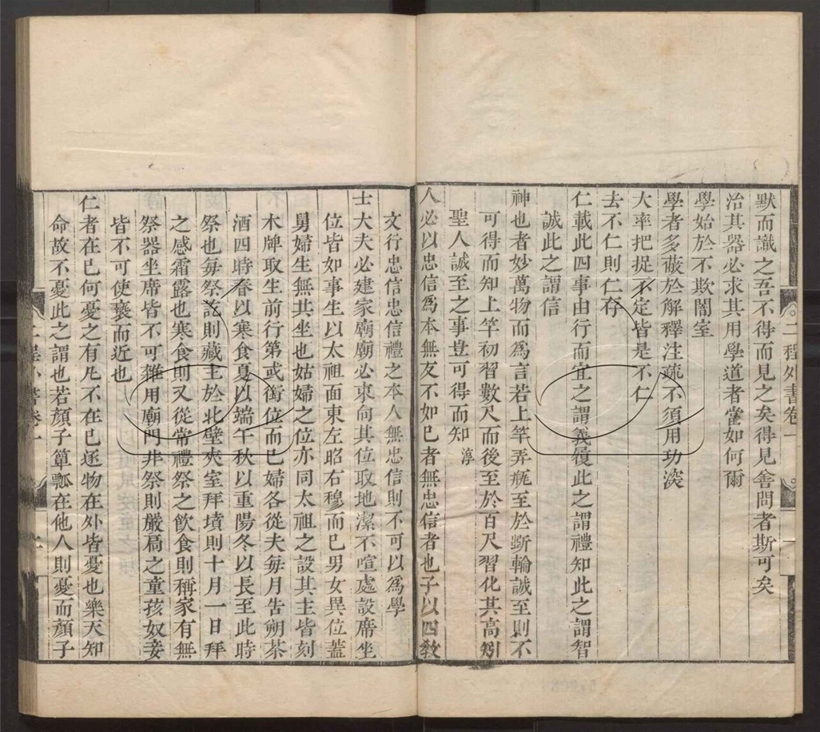 二程外書卷一
默而識之吾不得而見之矣得見善問者斯可矣
治其器必求其用學道者當如何爾
學始於不欺闇室
學者多蔽於解釋注疏不須用功深
大率把捉不定皆是不仁
去不仁則仁存
仁載此四事由行而宜之謂義履此之謂禮知此之謂智
誠此之謂信
神也者妙萬物而爲言若上竿弄瓶至於斲輪誠至則不
可得而知上竿初習數尺而後至於百尺習化其高矧
聖人誠至之事豈可得而知 淳
人必以忠信爲本無友不如己者無忠信者也子以四教
文行忠信忠信禮之本人無忠信則不可以爲學
士大夫必建家廟廟必東向其位取地潔不喧處設席坐
位皆如事生以太祖面東左昭右穆而已男女異位蓋
舅婦生無共坐也姑婦之位亦同太祖之設其主皆刻
木牌取生前行第或銜位而已婦各從夫每月告朔茶
酒四時春以寒食夏以端午秋以重陽冬以長至此時
祭也每祭訖則藏主於北壁夾室拜墳則十月一日拜
之感霜露也寒食則又從常禮祭之飲食則稱家有無
祭器坐席皆不可雜用廟門非祭則嚴扃之童孩奴妾
皆不可使褻而近也
仁者在己何憂之有凡不在己逐物在外皆憂也樂天知
命故不憂此之謂也若顏子簞瓢在他人則憂而顏子
二程外書卷一